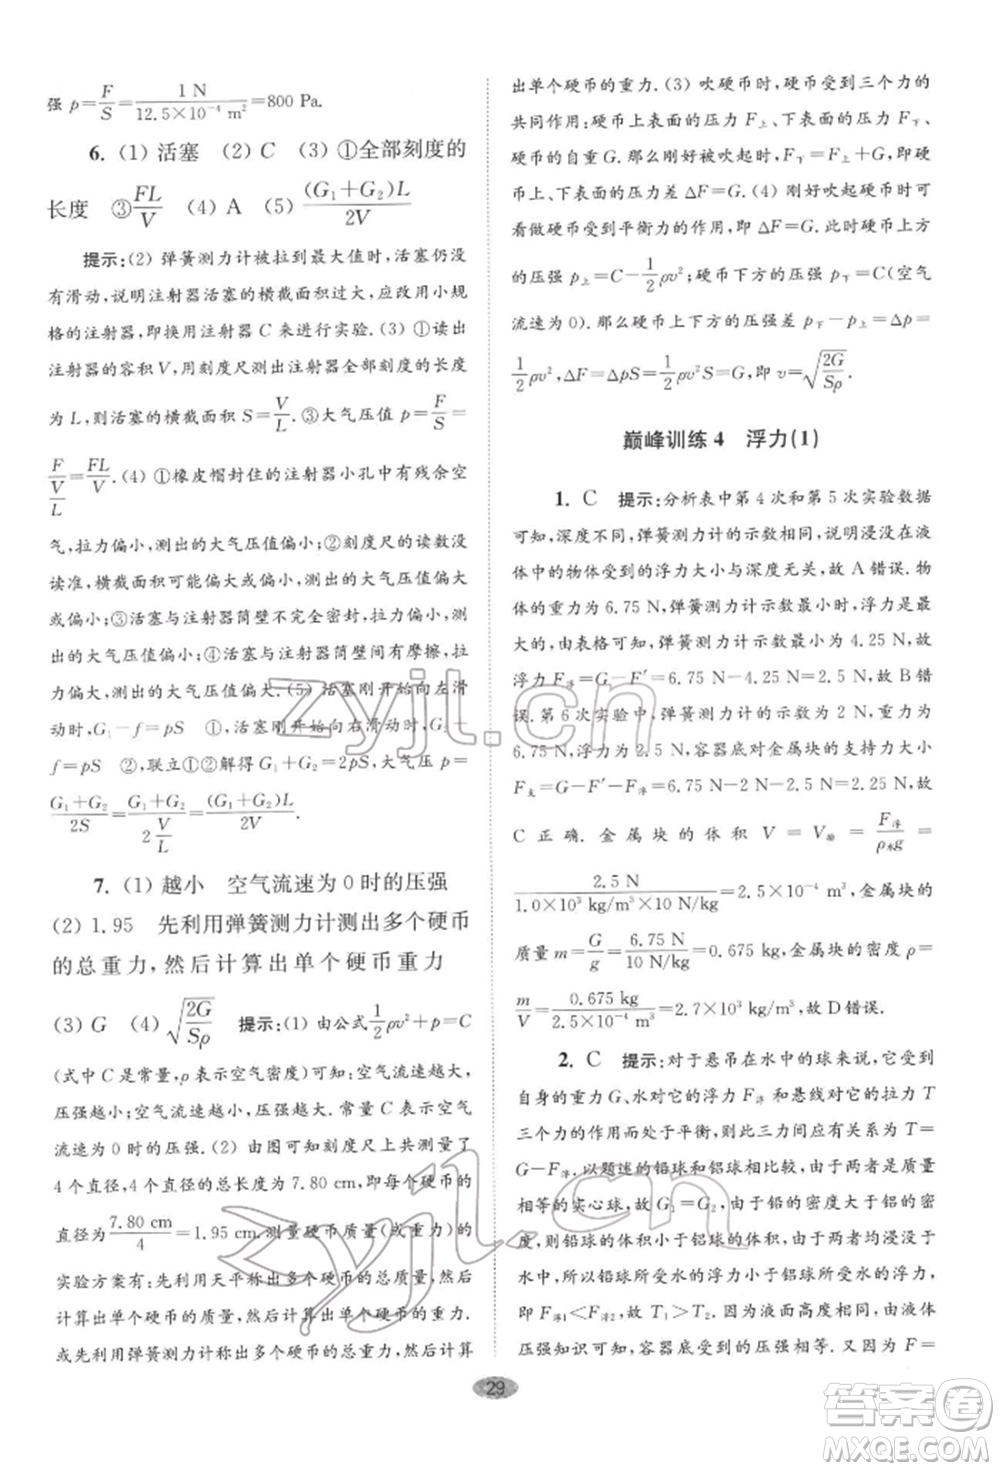 强 p=F/S=1 N/(12.5×10⁻⁴ m²)=800 Pa.
6. (1) 活塞 (2) C (3) ①全部刻度的
长度 ③FL/V (4) A (5) (G₁+G₂)L/2V
提示:(2) 弹簧测力计被拉到最大值时,活塞仍没
有滑动,说明注射器活塞的横截面积过大,应改用小规
格的注射器,即换用注射器 C 来进行实验. (3) ①读出
注射器的容积 V,用刻度尺测出注射器全部刻度的长度
为 L,则活塞的横截面积 S=V/L. ③大气压值 p=F/S=
F/(V/L)=FL/V. (4) ①橡皮帽封住的注射器小孔中有残余空
气,拉力偏小,测出的大气压值偏小;②刻度尺的读数没
读准,横截面积可能偏大或偏小,测出的大气压值偏大或
偏小;③活塞与注射器筒壁不完全密封,拉力偏小,测
出的大气压值偏小;④活塞与注射器筒壁间有摩擦,拉力
偏大,测出的大气压值偏大. (5) 活塞刚开始向左滑
动时,G₁-f=pS ①,活塞刚开始向右滑动时,G₂+
f=pS ②,联立①②解得 G₁+G₂=2pS,p=
(G₁+G₂)/2S=(G₁+G₂)/(2V/L)=(G₁+G₂)L/2V.
7. (1) 越小 空气流速为 0 时的压强
(2) 1.95 先利用弹簧测力计测出多个硬币
的总重力,然后计算出单个硬币重力
(3) G (4) √(2G/Sρ) 提示:(1) 由公式1/2ρv²+p=C
(式中 C 是常量,ρ表示空气密度)可知,气体流速越大,
压强越小;空气流速越小,压强越大. 常量 C 表示空气
流速为 0 时的压强. (2) 由图可知刻度尺上共测量了
4 个直径,4 个直径的总长度为 7.80 cm,即每个硬币的
直径为7.80 cm/4=1.95 cm. 测量硬币质量(或重力)的
实验方案有:先利用天平称出多个硬币的总质量,然后
计算出单个硬币的质量,最后计算出单个硬币的重力.
或先利用弹簧测力计称出多个硬币的总重力,然后计算
出单个硬币的重力. (3) 吹硬币时,硬币受到三个力的
共同作用:硬币上表面的压力 F上、下表面的压力 F下、硬
币的自重 G. 那么刚好被吹起时,F下=F上+G,即硬
币上、下表面的压力差 ΔF=G. (4) 刚好吹起硬币时可
看做硬币受到平衡力的作用,即 ΔF=G. 所以,硬币上方
的压强 p上=C-1/2ρv²;硬币下方的压强 p下=C(空气
流速为 0). 那么硬币上下方的压强差 p下-p上=Δp=
1/2ρv²,ΔF=ΔpS=1/2ρv²S=G,即 v=√(2G/Sρ).
巅峰训练 4 浮力(1)
1. C 提示:分析表中第 4 次和第 5 次实验数据
可知,深度不同,弹簧测力计的示数相同,说明浸没在液
体中的物体受到的浮力大小与深度无关,故 A 错误. 物
体的重力为 6.75 N,弹簧测力计示数最小时,浮力是最
大的,由表格可知,弹簧测力计示数最小为 4.25 N,故
浮力 F浮=G-F′=6.75 N-4.25 N=2.5 N,故 B 错
误. 第 6 次实验中,弹簧测力计的示数为 2 N,重力为
6.75 N,浮力为 2.5 N,容器底对金属块的支持力大小
F支=G-F′-F浮=6.75 N-2 N-2.5 N=2.25 N,故
C 正确. 金属块的体积 V=V排=F浮/ρ水g=
2.5 N/(1.0×10³ kg/m³×10 N/kg)=2.5×10⁻⁴ m³,金属块的
质量 m=G/g=6.75 N/(10 N/kg)=0.675 kg,金属块的密度 ρ=
m/V=0.675 kg/(2.5×10⁻⁴ m³)=2.7×10³ kg/m³,故 D 错误.
2. C 提示:对于悬吊在水中的球来说,它受到了
自身的重力 G、水对它的浮力 F浮和悬线对它的拉力 T
三个力的作用而处于平衡,则此三力间应有关系为 T=
G-F浮. 以题述的铅球和铝球相比较,由于两者是质量
相等的实心球,故 G₁=G₂. 由于铅的密度大于铝的密
度,则铅球的体积小于铝球的体积,由于两者均浸没于
水中,所以铅球所受水的浮力小于铝球所受水的浮力,
即 F浮1<F浮2,故 T₁>T₂. 因为水面高度相等,由液体
压强知识可知两容器底部所受水的压强相等. 又因为 F=
29
zyjl.cn
zyjl.cn
答案圈
MXQE.COM